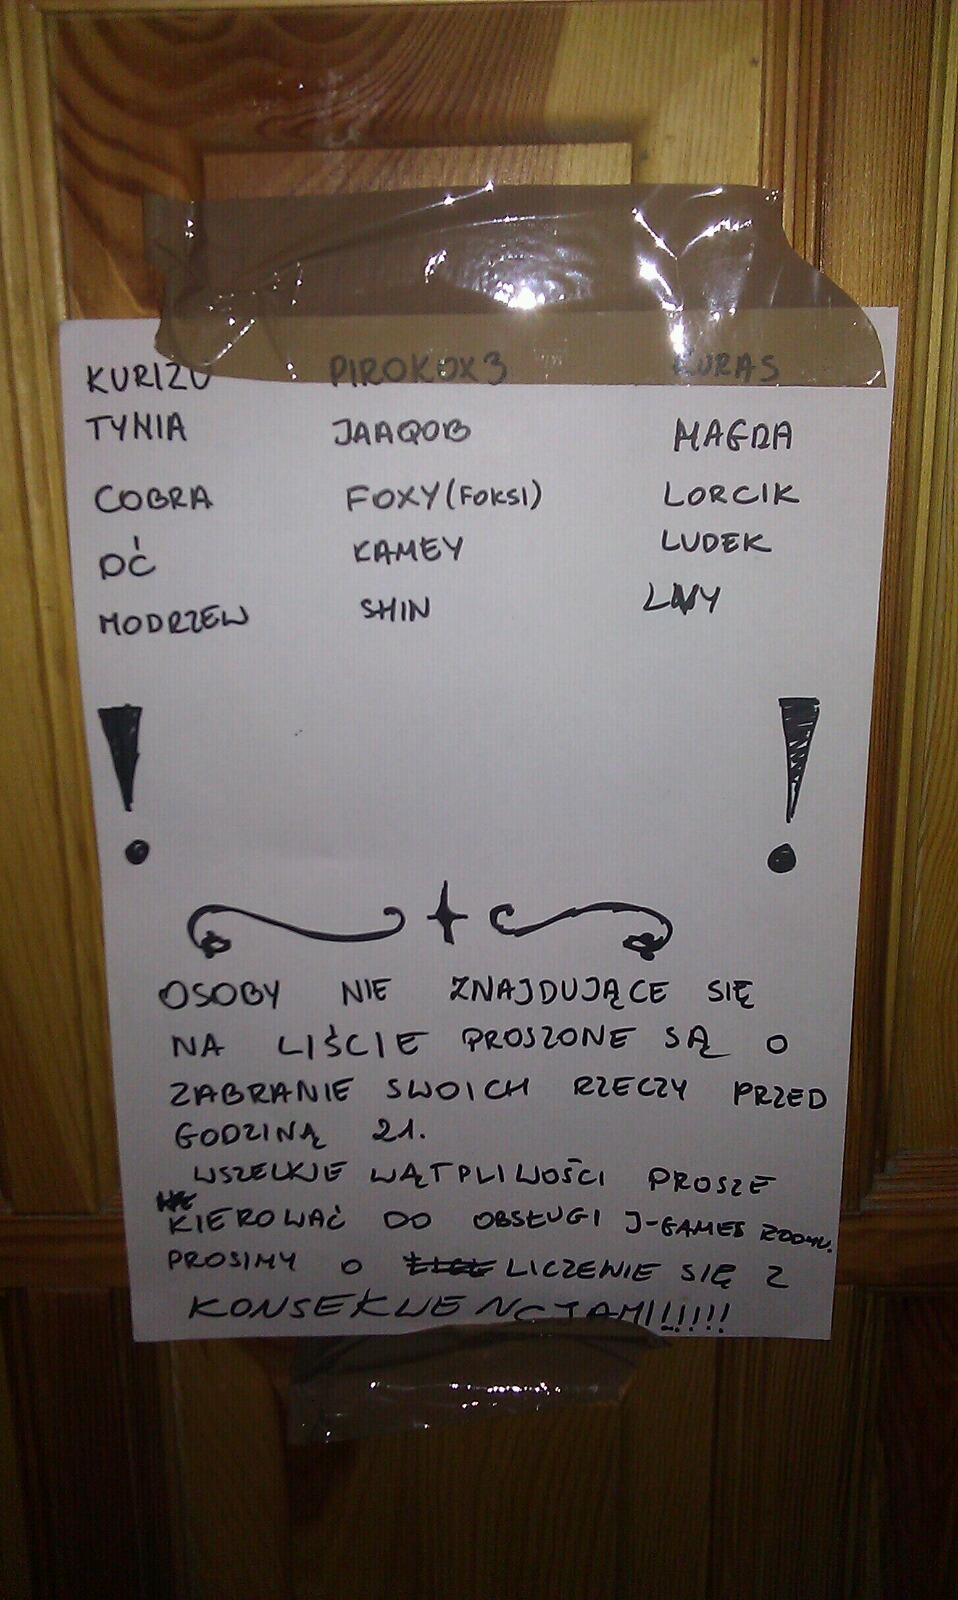 KURIZU PIROKOX3 KURAS
TYNIA JAAQOB MAGDA
COBRA FOXY (FOKSI) LORCIK
DĆ KAMEY LUDEK
MODRZEW SHIN
! !
OSOBY NIE ZNAJDUJĄCE SIĘ
NA LIŚCIE PROSZONE SĄ O
ZABRANIE SWOICH RZECZY PRZED
GODZINĄ 21.
WSZELKIE WĄTPLIWOŚCI PROSZE
KIEROWAĆ DO OBSŁUGI J-GAMES ROOM.
PROSIMY O LICZENIE SIĘ Z
KONSEKWENCJAMI!!!!!!